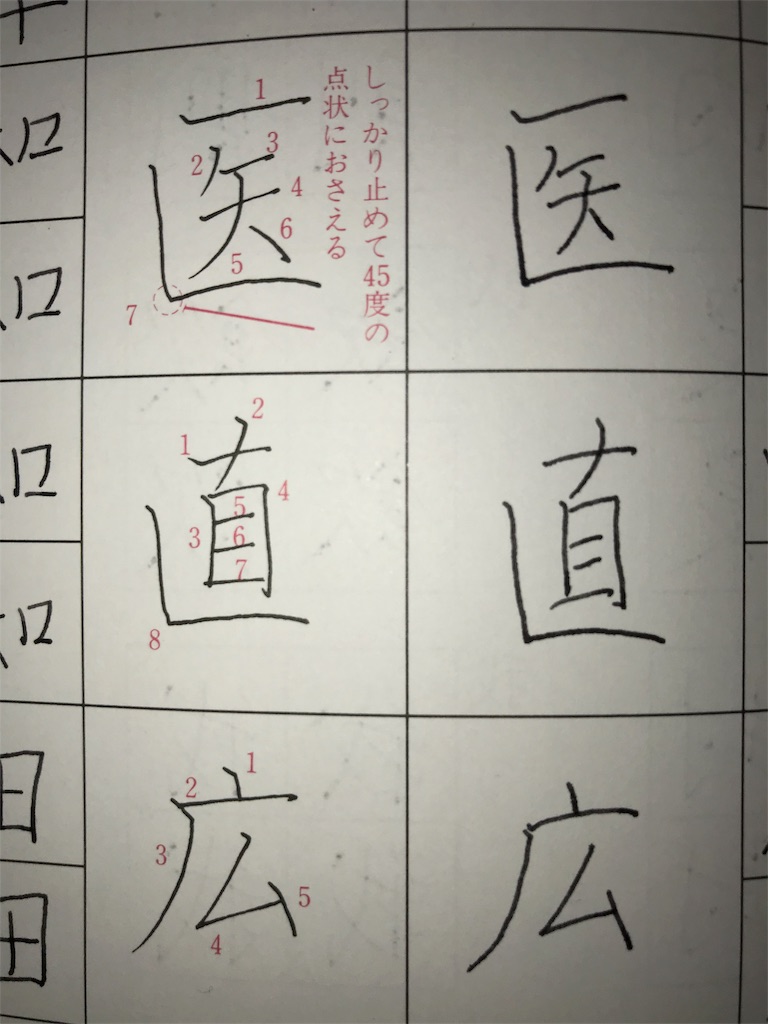 しっかり止めて45度の
点状におさえる
1
2
3
4
5
6
7
医
医
1
2
3
4
5
6
7
8
直
直
1
2
3
4
5
広
広
口
口
口
口
田